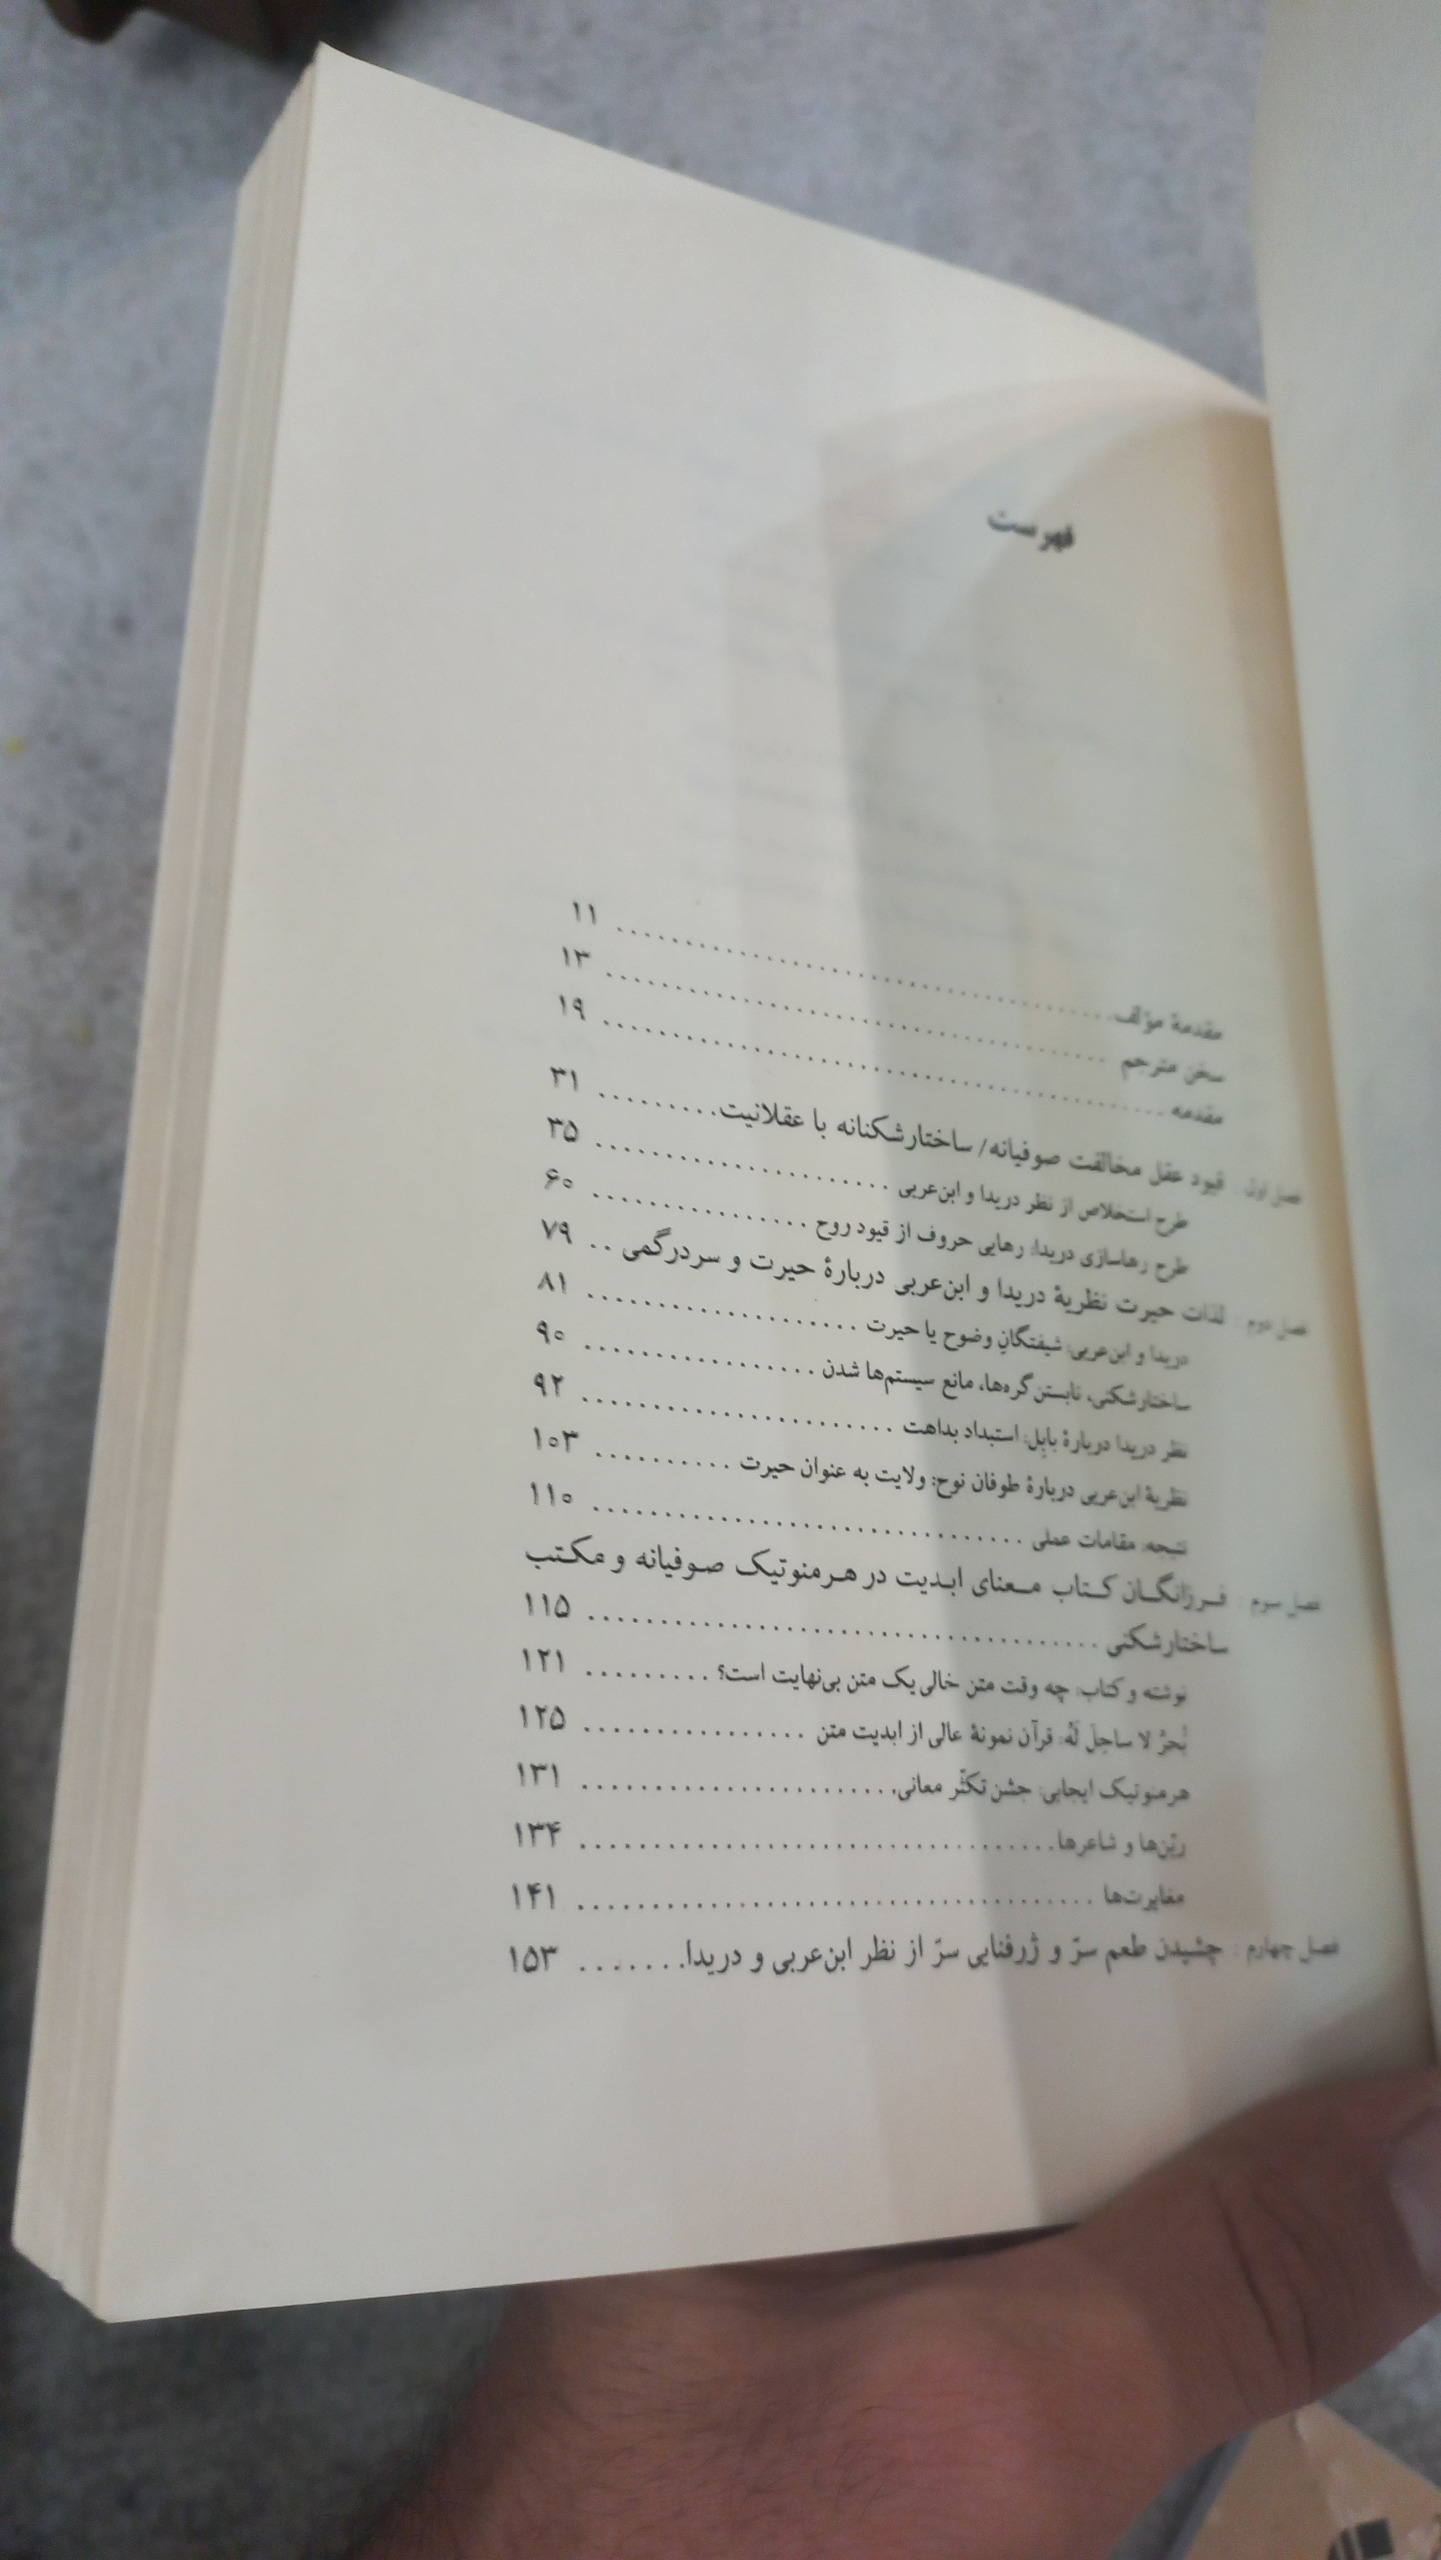 فهرست
مقدمهٔ مؤلف ........ ۱۱
سخن مترجم ........ ۱۳
مقدمه ........ ۱۹
فصل اول : قیود عقل مخالفت صوفیانه/ ساختارشکنانه با عقلانیت ........ ۳۱
طرح استخلاص از نظر دریدا و ابن‌عربی ........ ۳۵
طرح رهاسازی دریدا: رهایی حروف از قیود روح ........ ۶۰
فصل دوم : لذات حیرت نظریهٔ دریدا و ابن‌عربی دربارهٔ حیرت و سردرگمی .. ۷۹
دریدا و ابن‌عربی: شیفتگانِ وضوح یا حیرت ........ ۸۱
ساختارشکنی، نابستن گره‌ها، مانع سیستم‌ها شدن ........ ۹۰
نظر دریدا دربارهٔ بابِل: استبداد بداهت ........ ۹۲
نظریهٔ ابن‌عربی دربارهٔ طوفان نوح: ولایت به عنوان حیرت ........ ۱۰۳
نتیجه: مقامات عملی ........ ۱۱۰
فصل سوم : فرزانگان کتاب معنای ابدیت در هرمنوتیک صوفیانه و مکتب
ساختارشکنی ........ ۱۱۵
نوشته و کتاب: چه وقت متن خالی یک متن بی‌نهایت است؟ ........ ۱۲۱
بُحرٌ لا ساحِلَ لَهُ: قرآن نمونهٔ عالی از ابدیت متن ........ ۱۲۵
هرمنوتیک ایجابی: جشن تکثّر معانی ........ ۱۳۱
ربّن‌ها و شاعرها ........ ۱۳۴
مغایرت‌ها ........ ۱۴۱
فصل چهارم : چشیدن طعم سرّ و ژرفنایی سرّ از نظر ابن‌عربی و دریدا ........ ۱۵۳